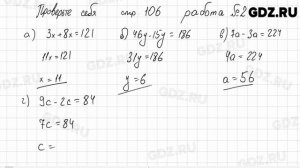 GDZ.RU
Проверьте себя стр 106 работа №2
а) 3x+8x=121 б) 46y-15y=186 в) 7a-3a=224
11x=121 31y=186 4a=224
x=11 y=6 a=56
г) 9c-2c=84
7c=84
c=
GDZ.RU